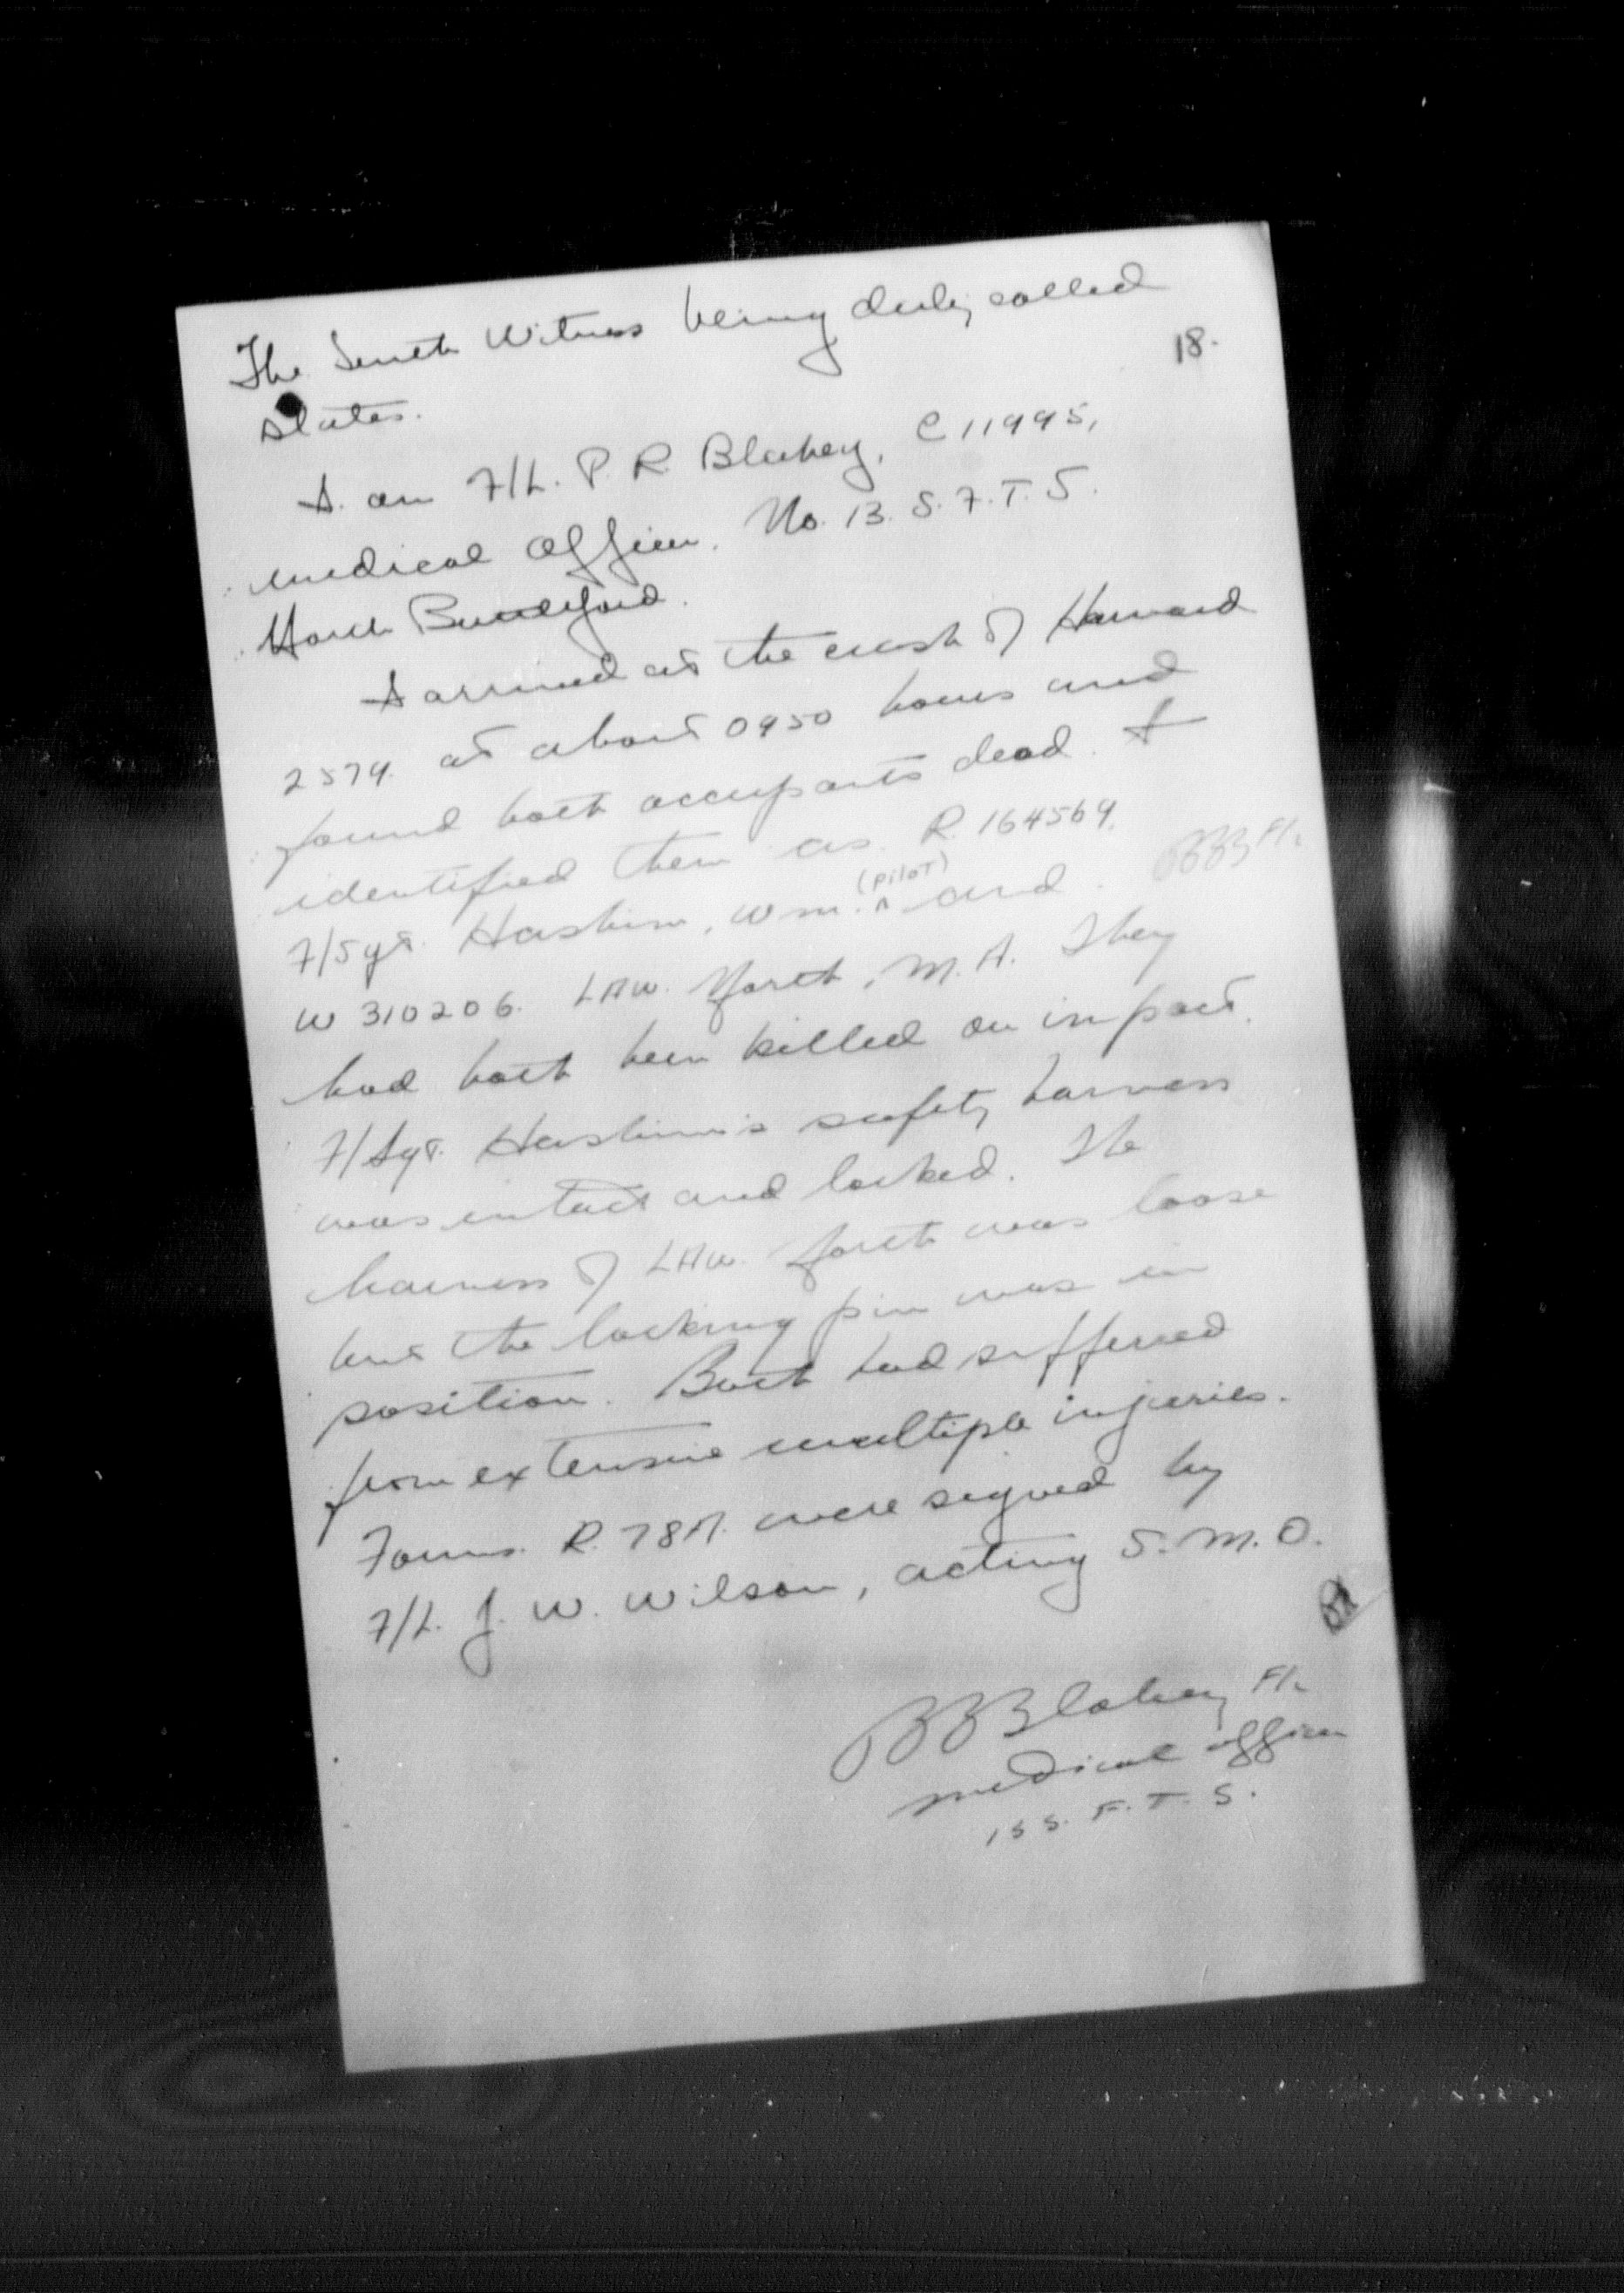 The Tenth Witness being duly called
18.
States.
I am F/L. P. R. Blakey, C11995,
medical officer, No. 13. S.F.T.S.
North Battleford.
I arrived at the crash of Harvard
2579 at about 0950 hours and
found both occupants dead. I
identified them as R. 164569,
F/Sgt. Haskim, Wm. (PILOT) and
W 310206. LAW. Forth, M. A. They
had both been killed on impact.
F/Sgt. Haskim's safety harness
was intact and locked. The
harness of LAW. Forth was loose
but the locking pin was in
position. Both had suffered
from extensive multiple injuries.
Forms R. 78A. were signed by
F/L. J. W. Wilson, acting S.M.O.
Blakey F/L
medical officer
S.F.T.S.